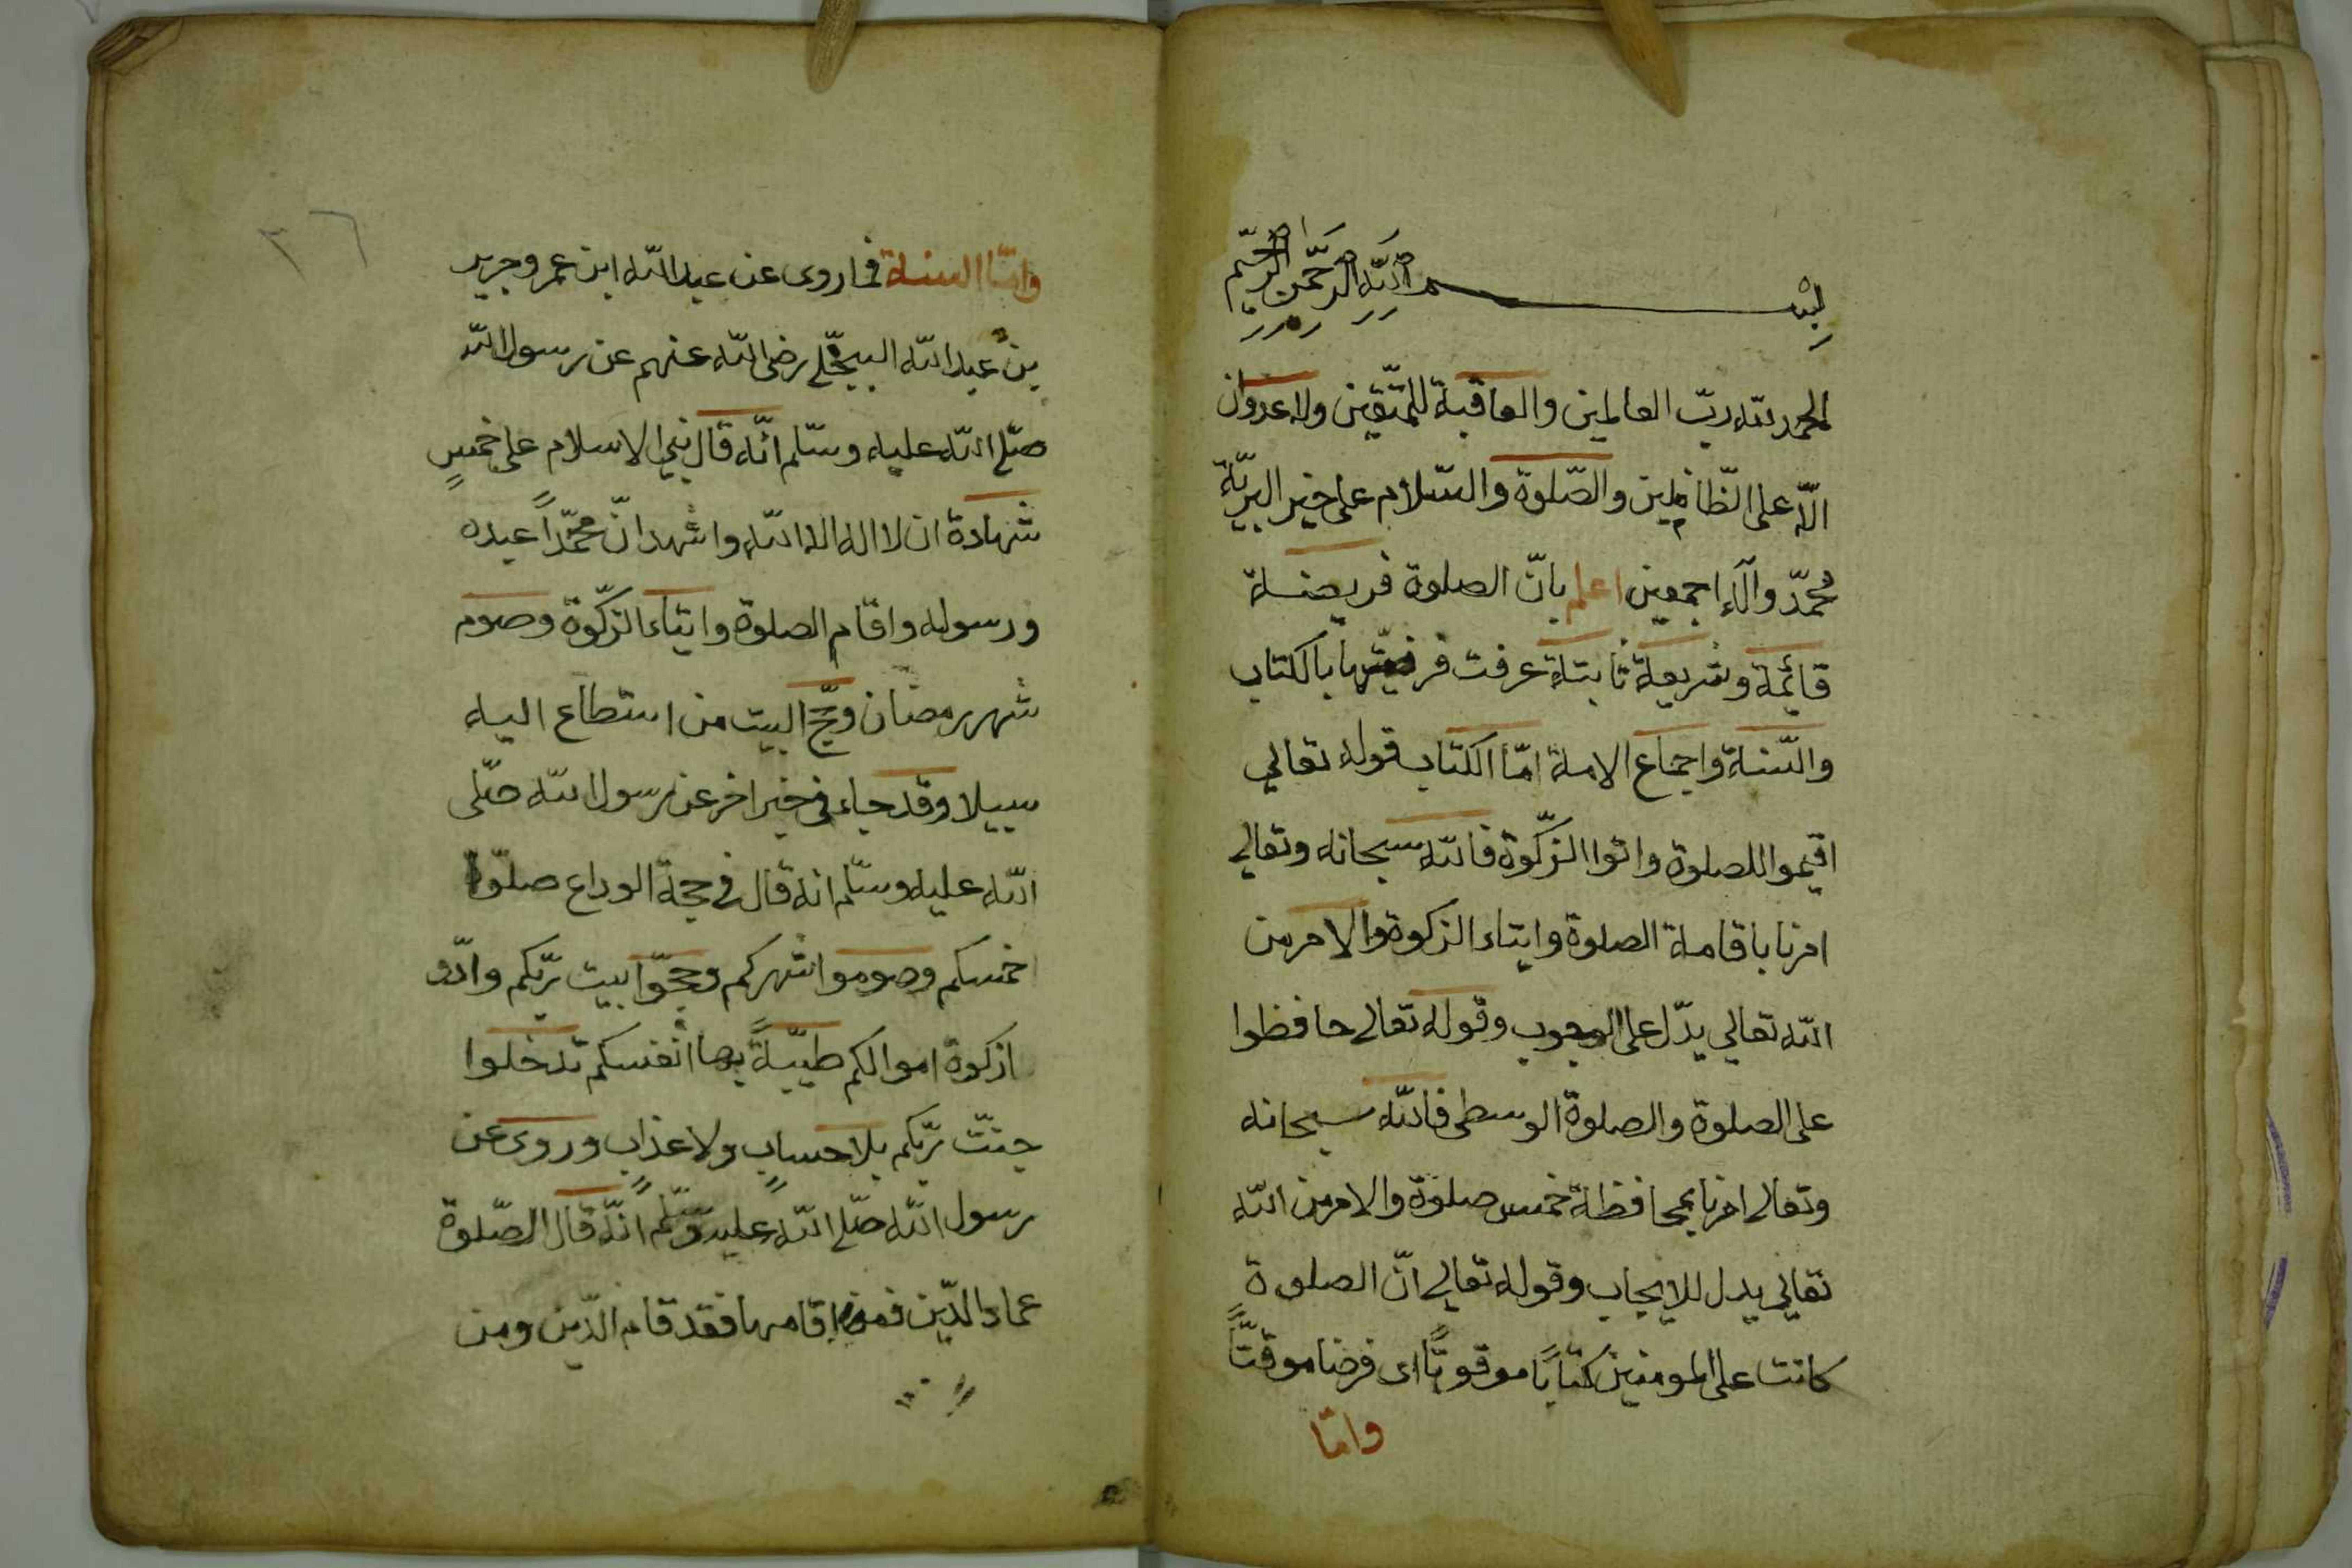 بسم الله الرحمن الرحيم
الحمد لله ربّ العالمين والعاقبة للمتّقين ولا عدوان
الّا على الظّالمين والصّلوة والسّلام على خير البريّة
محمّد وآله اجمعين اعلم بانّ الصلوة فريضة
قائمة وشريعة ثابتة عرفت فرضيّتها بالكتاب
والسّنة واجماع الامة امّا الكتاب قوله تعالي
اقيموا للصلوة واتوا الزّكوة فالله سبحانه وتعالي
امرنا باقامة الصلوة وايتاء الزكوة والامر من
الله تعالي يدّل على الوجوب وقوله تعالي حافظوا
على الصلوة والصلوة الوسطى فالله سبحانه
وتعالي امرنا بمحافظة خمس صلوة والامر من الله
تعالي يدل للايجاب وقوله تعالي انّ الصلوة
كانت على المومنين كتابًا موقوتًا اى فرضا موقتّاً
وامّا
٢٦
وامّا السنة فما روى عن عبد الله ابن عمر وجرير
بن عبد الله البجلّي رضى الله عنهم عن رسول الله
صلّى الله عليه وسلّم انّه قال بني الاسلام على خمسٍ
شهادة ان لا اله الا الله واشهد انّ محمّداً عبده
ورسوله واقام الصلوة وايتاء الزّكوة وصوم
شهر رمضان وحجّ البيت من استطاع اليه
سبيلا وقد جاء فى خبر اخر عن رسول الله صلّى
الله عليه وسلّم انه قال فى حجة الوداع صلّوا
خمسكم وصوموا شهركم وحجّوا بيت ربّكم وادّو
ازكوة اموالكم طيّبةً بها انفسكم تدخلوا
جنّت ربّكم بلا حسابٍ ولا عذابٍ وروى عن
رسول الله صلّى الله عليه وسلّم انّه قال الصّلوة
عماد الدّين فمن اقامها فقد قام الدّين ومن